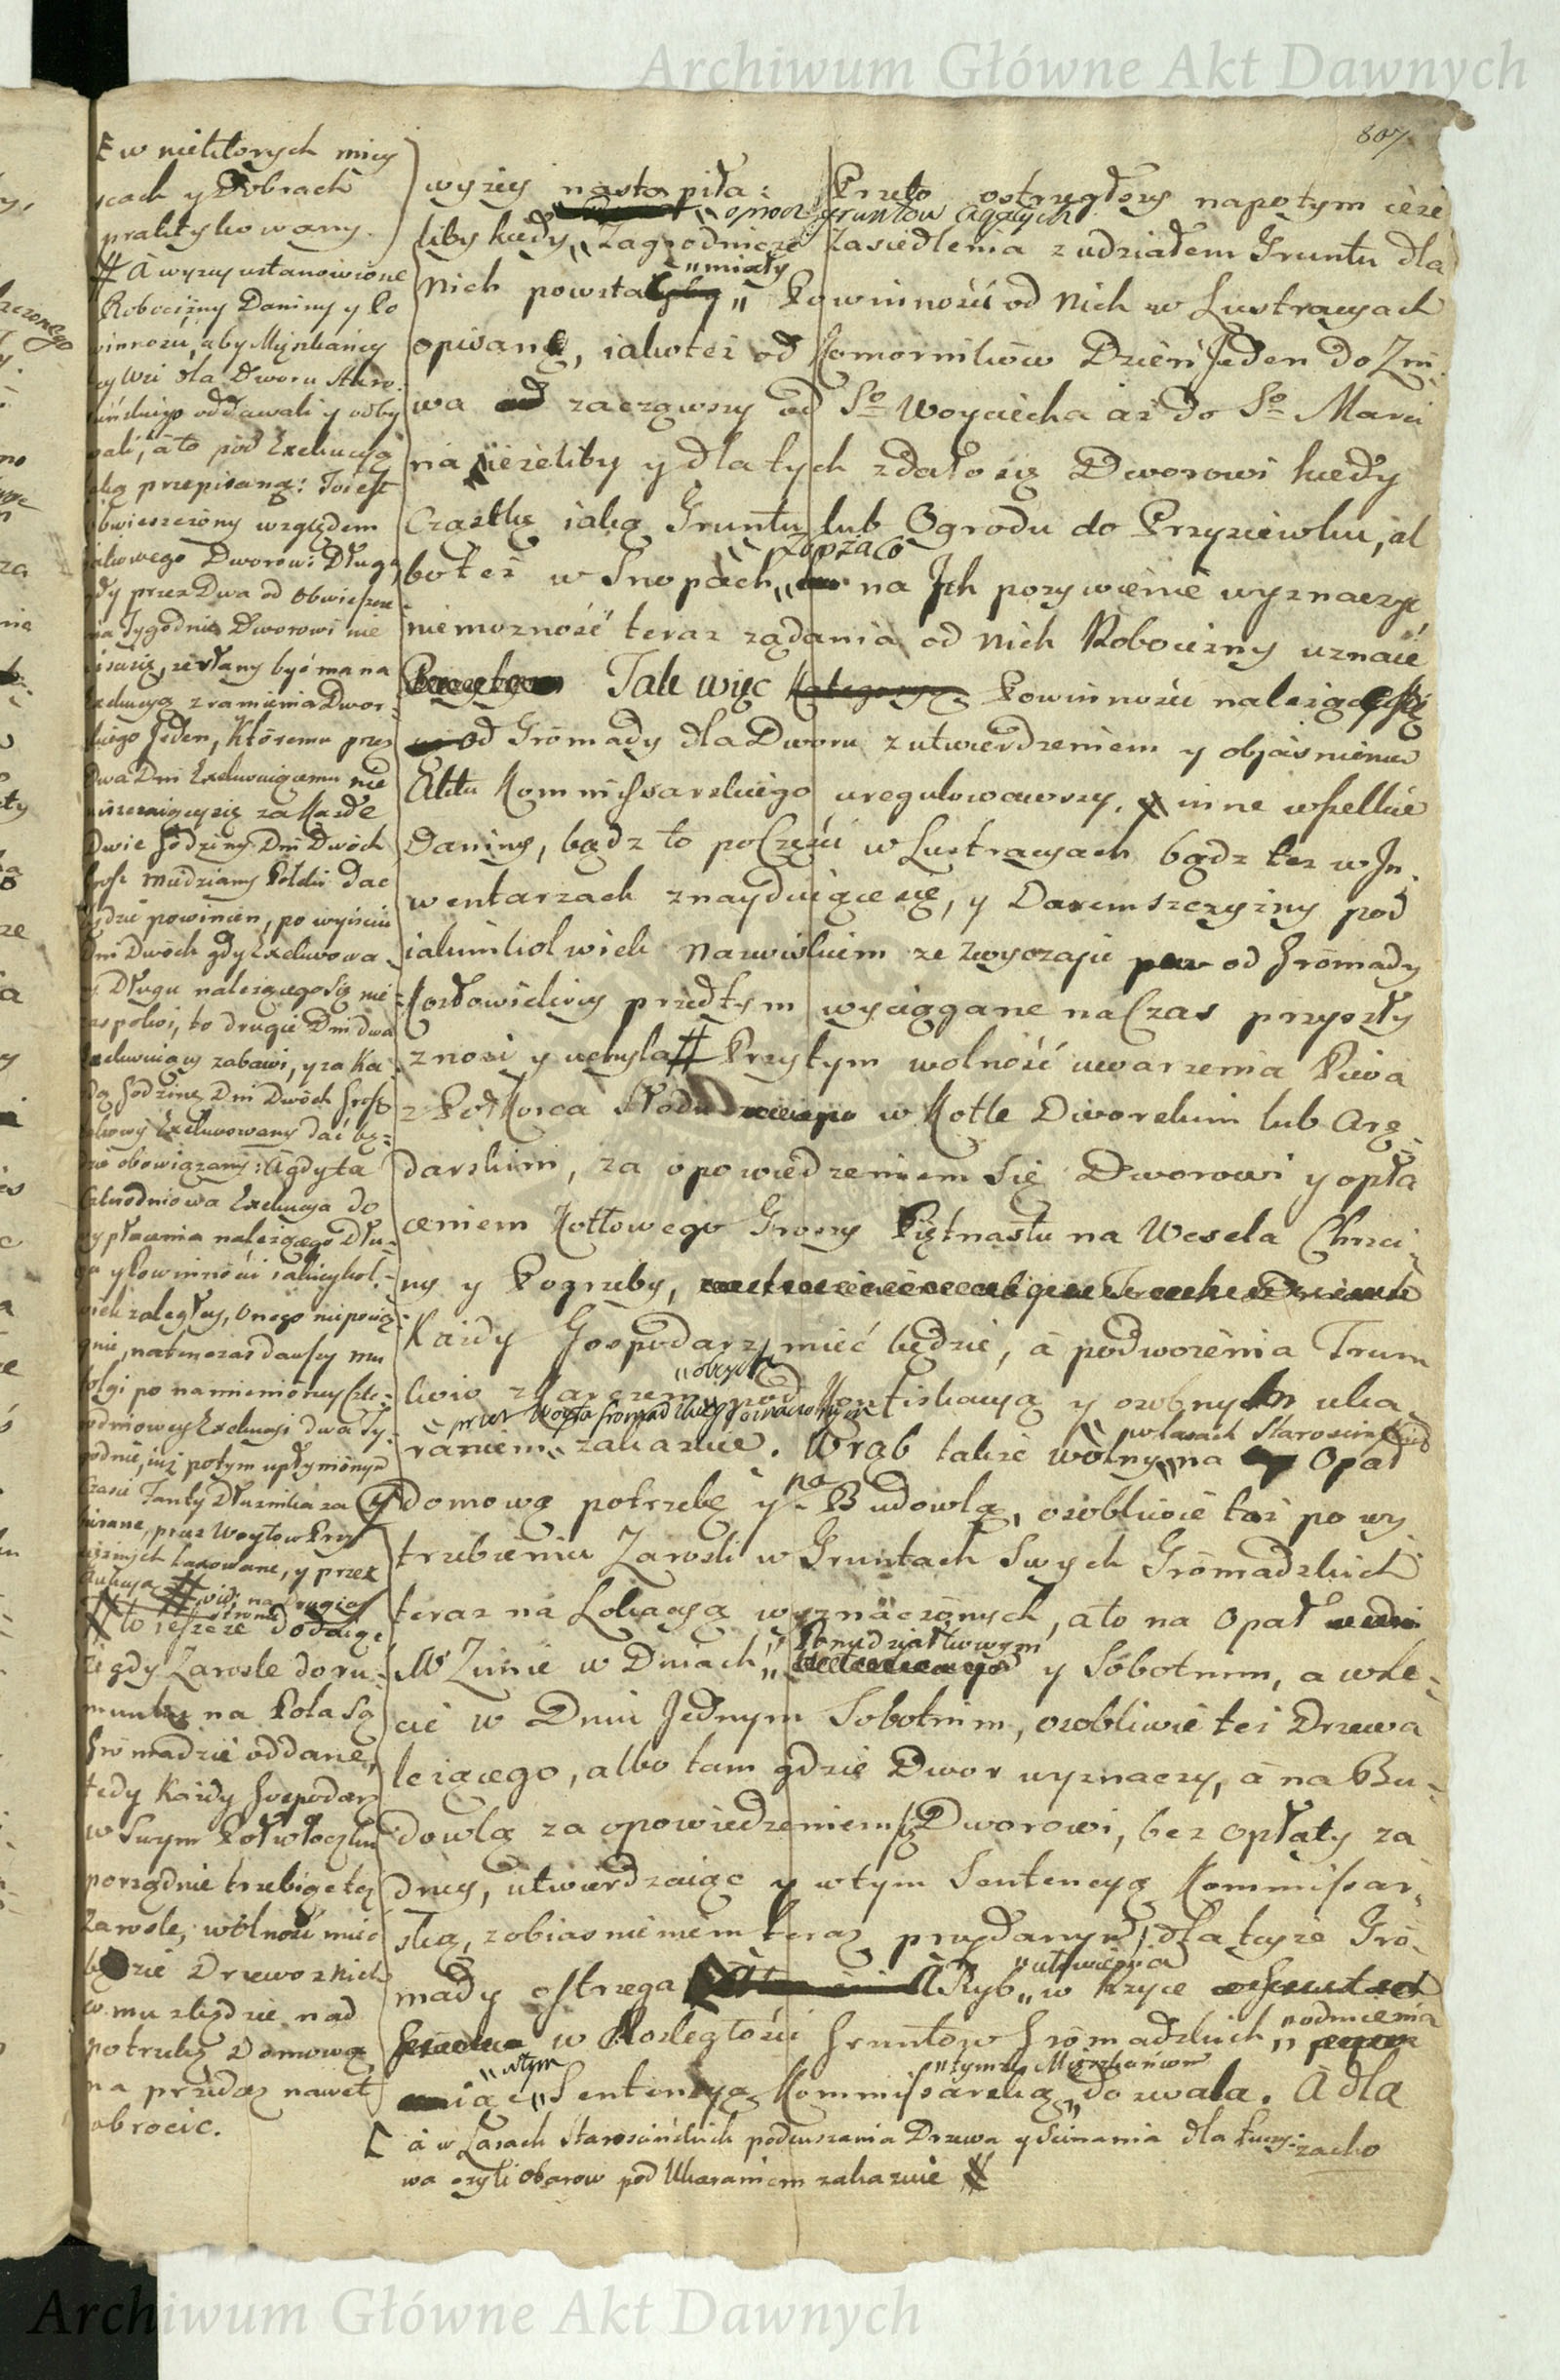 Archiwum Główne Akt Dawnych
807
w niektorych miey
scach y Dobrach
praktykowany.
# A wyzey ustanowione
Robocizny Daniny y Po
winnosci, aby Mieszkancy
tey Wsi dla Dworu Staro
scinskiego oddawali y odby
wali, a to pod Exekucyą
taką przepisaną: To iest
obwieszczony względem
iakowego Dworowi Długu
gdy przez Dwa od obwieszcze
nia Tygodnie Dworowi nie
zesłany być ma na
Exekucyą z ramienia Dwor
skiego Jeden, Ktoremu przez
Dwa Dni Exekwuiącemu nie
uiszczaiący się za Każde
Dwie Godziny Dni Dwóch
Grosz miedziany Polski dać
będzie powinien, po wyisciu
Dni Dwoch gdy Exekwowa
ny Długu należącego się nie
zaspokoi, to drugie Dni dwa
Exekwuiący zabawi, y za Ka
żdą Godzinę Dni Dwóch Grosz
takowy Exekwowany dać bę
dzie obowiązany: A gdy ta
Czterodniowa Exekucya do
wypłacenia należącego Dłu
gu y Powinnosci iakieykol
wiek zaległey, onego nie
natenczas dawszy mu
folgi po namienioney Czte
rodniowey Exekucyi dwa Ty
godnie, iuż potym upłynionym
Czasie Fanty Dłuznika za
bierane, przez Woytow Przy
sięznych taxowane, y przez
# vide na drugiey
stronie
# to ieszcze dodaiąc
iż gdy Zarosle do ru
munku na Pola są
Gromadzie oddane,
tedy Kazdy Gospodarz
w swym Połwłoczku
porządnie trzebiąc też
Zarosle, wolność mieć
będzie Drzewo z nich
co mu zbędzie nad
potrzebę Domową
na przedaż nawet
obrocic.
wyzey nastąpiła: Przeto ostrzegłszy napotym ieże
oprocz gruntow Ciągłych
liby kiedy Zagrodnicze Zasiedlenia z udziałem Gruntu dla
miały
Nich powstać Powinności od Nich w Lustracyach
opisane, iakoteż od Komornikow Dzień Jeden do Żni
wa zacząwszy od So Woyciecha aż do So Marci
na ieżeliby y dla tych zdało się Dworowi kiedy
Cząstkę iaką Gruntu lub Ogrodu do Przysiewku, al
boteż w Snopach na Jch pożywienie wyznaczyć
niemożność teraz żądania od Nich Robocizny uznaie
Tak więc Powinności należące się
od Gromady dla Dworu z utwierdzeniem y obiasnieniem
Aktu Kommissarskiego uregulowawszy, inne wszelkie
Daniny, bądz to po Części w Lustracyach bądz też w In
wentarzach znayduiące się, y Daremszczyzny pod
iakimkolwiek nazwiskiem ze zwyczaju od Gromady
Kozłowieckiey przedtym wyciągane na Czas przyszły
znosi y uchyla # Przytym wolność uwarzenia Piwa
z Połkorca Słodu w Kotle Dworskim lub Arę
darskim, za opowiedzeniem się Dworowi y opła
ceniem Kotłowego Groszy Piętnastu na Wesela Chrzci
ny y Pogrzeby,
Kazdy Gospodarz mieć będzie, a podwożenia Trun
obcych
kow z Karczem pod Konfiskacyą y osobnym uka
przez Woyta Gromadzkiego
raniem zakazuie. Wrąb także wolny na Opał
w lasach Staroscinskich
y domową potrzebę y na Budowlą, osobliwie też po wy
trzebieniu Zarosli w Gruntach Swych Gromadzkich
teraz na Lokacyą wyznaczonych, a to na Opał
w Zimie w Dniach Poniedziałkowym y Sobotnim, a w Le
cie w Dniu Jednym Sobotnim, osobliwie też Drzewa
leżącego, albo tam gdzie Dwor wyznaczy, a na Bu
dowlą za opowiedzeniem się Dworowi, bez opłaty ża
dney, utwierdzaiąc y w tym Sentencyą Kommissar
ską, z obiasnieniem teraz przydanym, dla teyże Gro
mady ostrzega A Ryb ułowienia w Rzyce
w Rozległości Gruntow Gromadzkich
w tym
iąc Sentencyą Kommissarską tymże Mieszkańcom dozwala. A dla
a w Lasach Staroscinskich podsuszania Drzewa y Scinania dla
wa czyli obarow pod Ukaraniem zakazuie #
Archiwum Główne Akt Dawnych